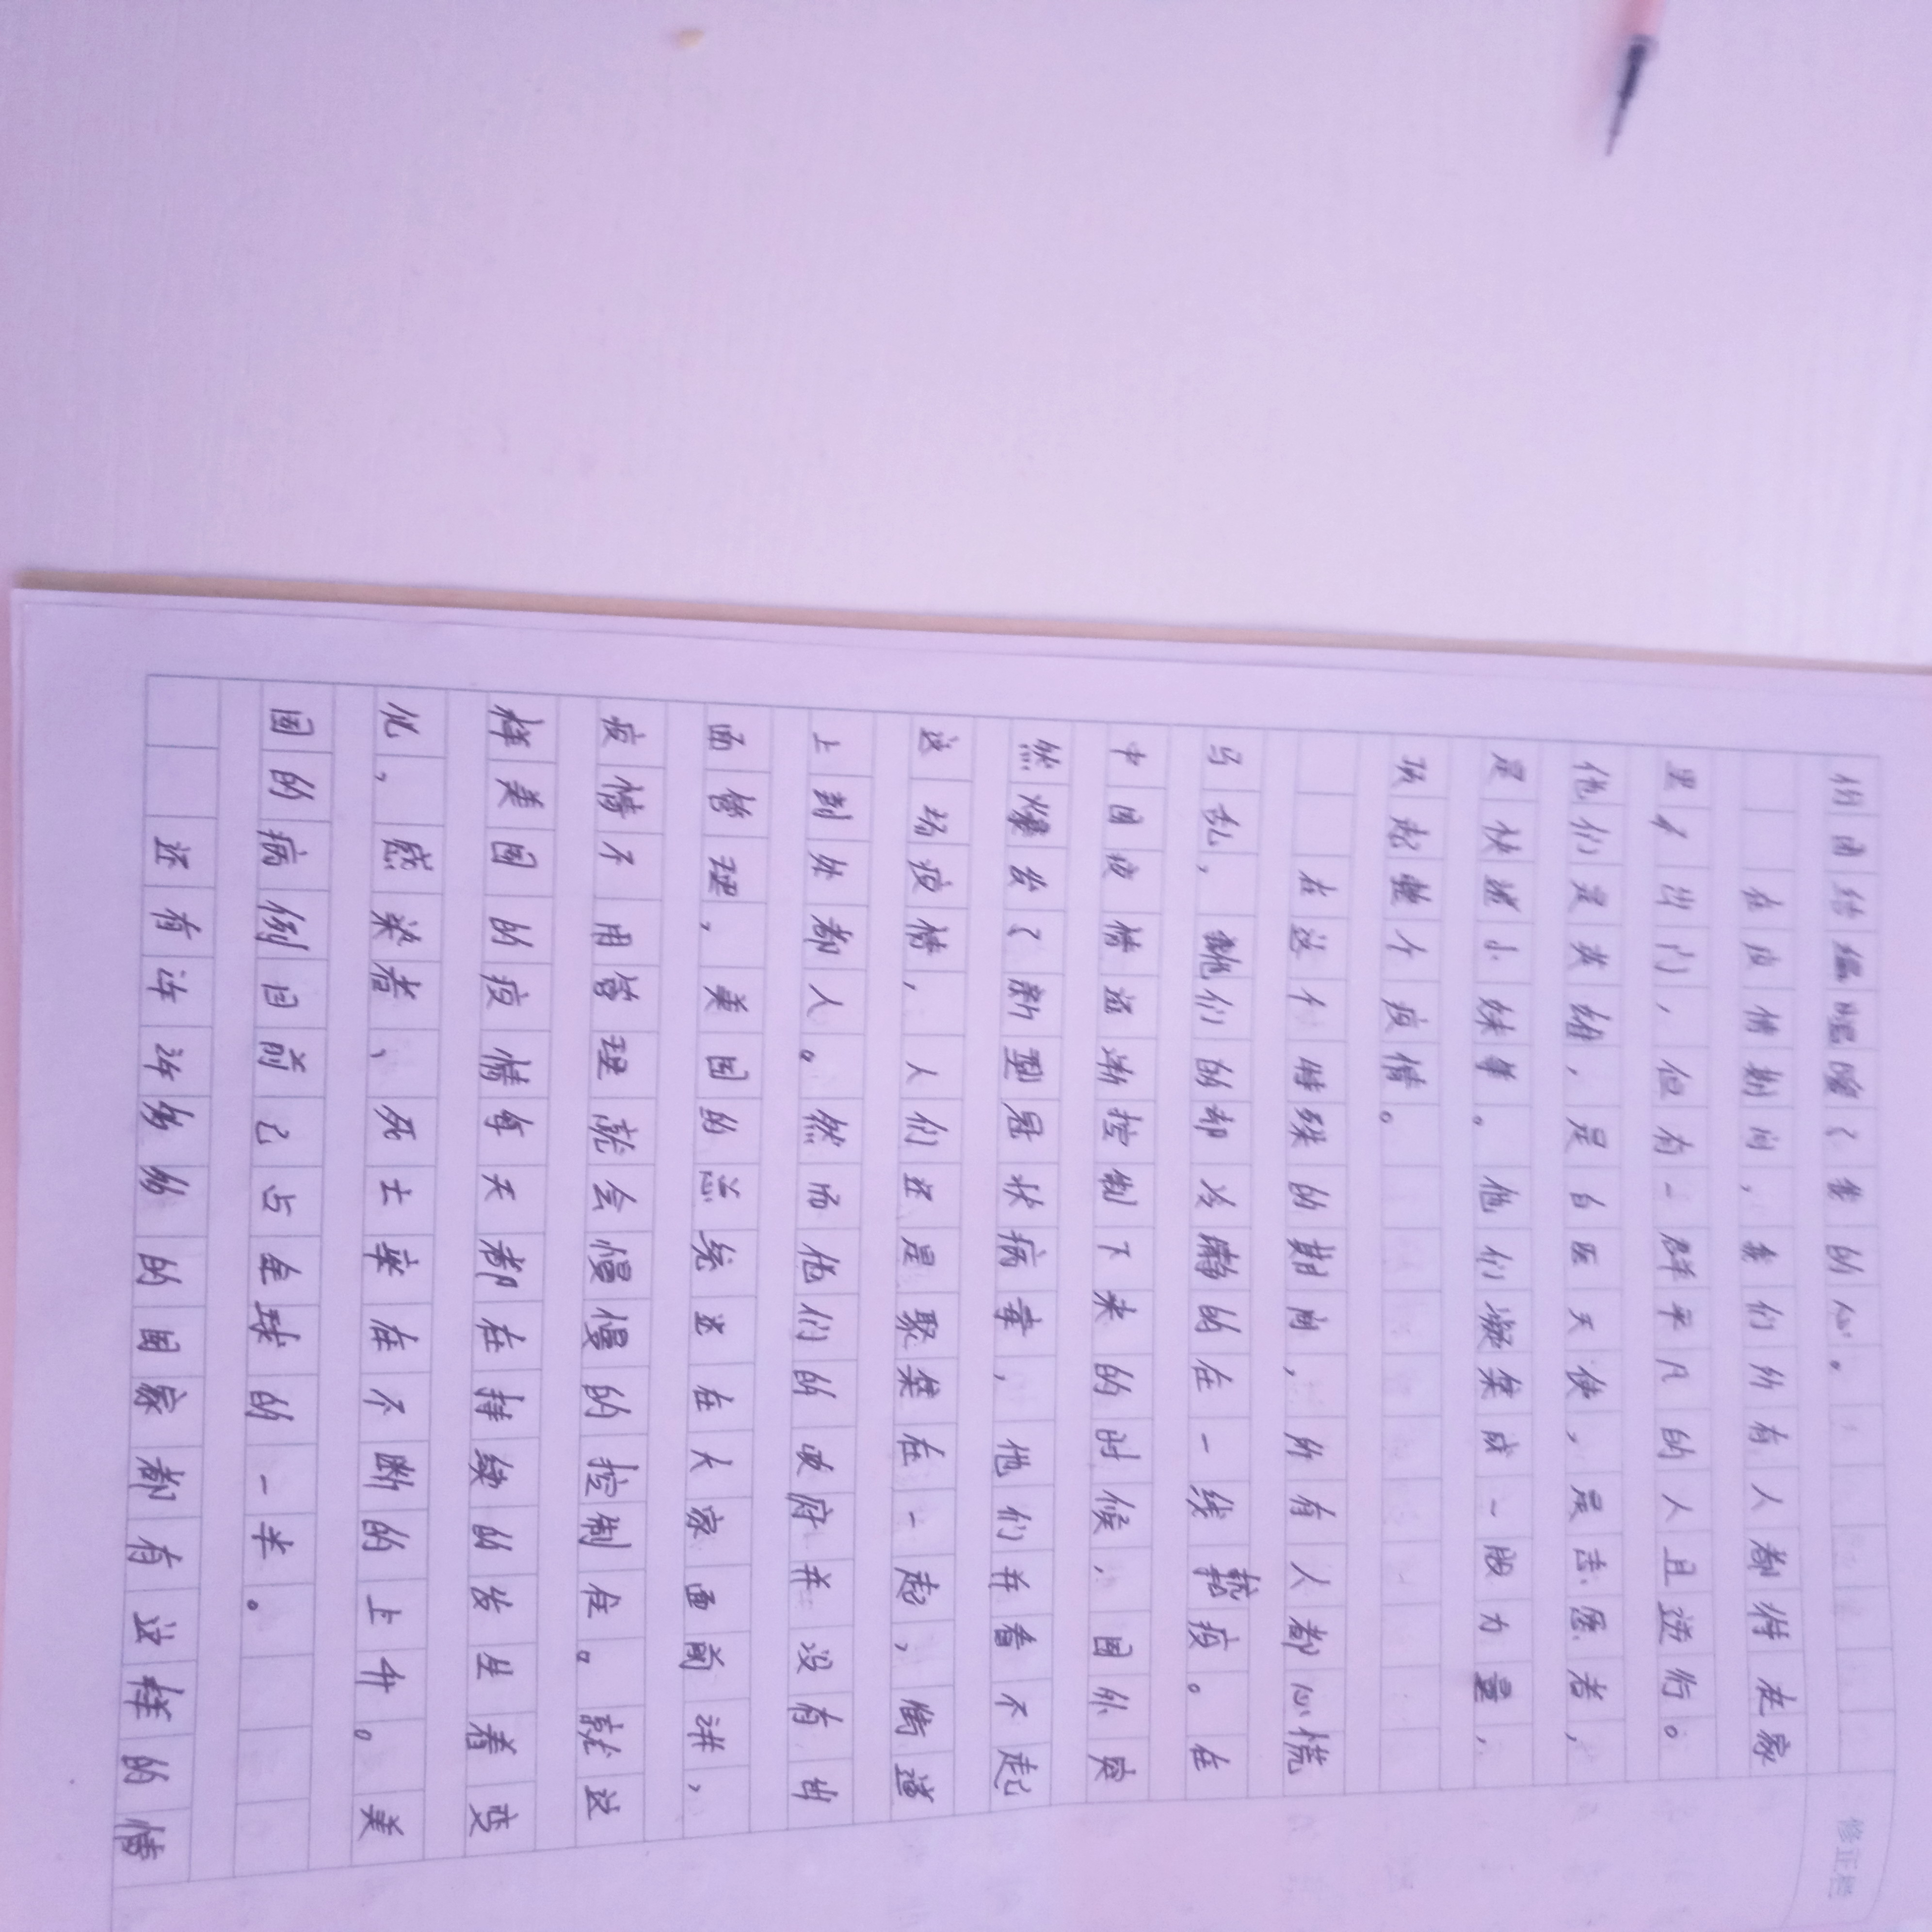 份团结温暖了我的心。
在疫情期间，我们所有人都待在家
里不出门，但有一群平凡的人且逆行。
他们是英雄，是白医天使，是志愿者，
是快递小妹等。他们凝集成一股力量，
顶起整个疫情。
在这个特殊的期间，所有人都心慌
马乱，他们的却冷静的在一线帮疫。在
中国疫情逐渐控制下来的时候，国外突
然爆发了新型冠状病毒，他们并看不起
这场疫情，人们还是聚集在一起，街道
上到处都人。然而他们的政府并没有出
面管理，美国的总统还在大家面前讲，
疫情不用管理就会慢慢的控制住。就这
样美国的疫情每天都在持续的发生着变
化，感染者、死士率在不断的上升。美
国的病例目前已占全球的一半。
还有许许多多的国家都有这样的情
修正栏